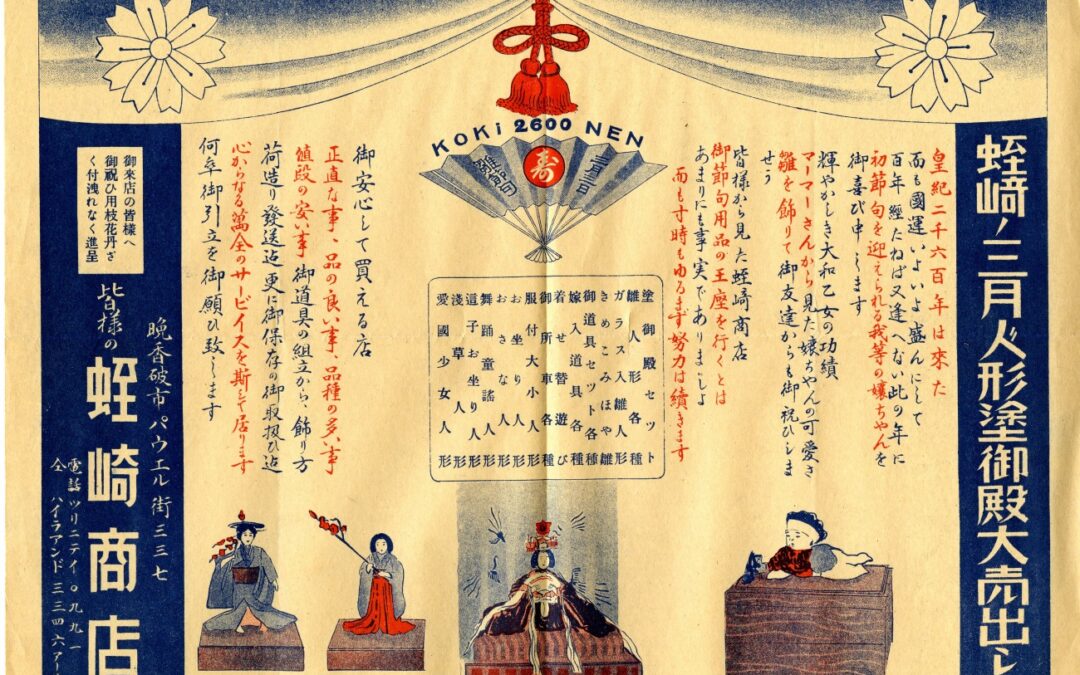 蛭﨑ノ三月人形塗御殿大売出し
KOKi 2600 NEN
雛節句
壽
三月三日
皇紀二千六百年は來た
而も國運いよいよ盛んにして
百年經たねば又逢へない此の年に
初節句を迎えられる我等の孃ちやんを
御喜び申します
輝やかしき大和乙女の功績
マーマーさんから見た孃ちやんの可愛き
雛を飾りて御友達からも御祝ひしま
せう
皆様から見た蛭﨑商店
御節句用品の王座を行くとは
あまりにも事実でありましよ
而も寸時もゆるまず努力は續きます
塗御殿セット
雛人形各種
ガラス入雛人形
きめこみほや雛
御道具セット各種
嫁入道具各種
着せ替遊び
御所車各種
服付大小人形
お坐り人形
おさな人形
舞踊童謠人形
道子お坐り人形
淺草人形
愛國少女人形
御安心して買える店
正直な事、品の良い事、品種の多い事
値段の安い事 御道具の組立から、飾り方
荷造り發送迄更に御保存の御取扱ひ迄
心からなる萬全のサービイスを斯して居ります
何卒御引立を御願ひ致します
御来店の皆様へ
御祝ひ用枝花丹ざ
く付洩れなく進呈
皆様の
蛭崎商店
晩香破市 パウエル街 三三七
電話 ツリニテイ 〇九九一
仝 ハイランド 三三四六ア